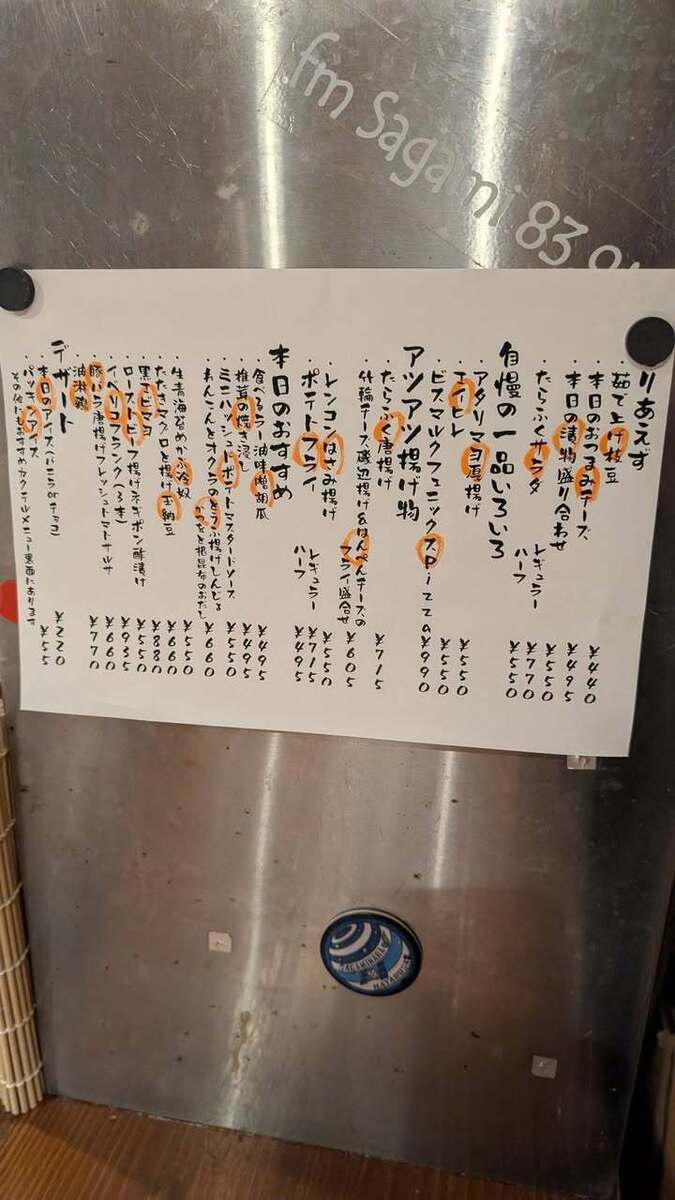 fm Sagami 83.9
りあえず
・茹で上げ枝豆 ¥440
・本日のおつまみチーズ ¥495
・本日の漬物盛り合わせ ¥550
・たらふくサラダ レギュラー ¥770
ハーフ ¥550
自慢の一品いろいろ
・アタリマヨ厚揚げ ¥550
・エイヒレ ¥550
・ビスマルクフェニックスPizza ¥990
アツアツ揚げ物
・たらふく唐揚げ ¥715
・竹輪チーズ磯辺揚げ&はんぺんチーズの
フライ盛合せ ¥605
・レンコンはさみ揚げ ¥550
・ポテトフライ レギュラー ¥715
ハーフ ¥495
本日のおすすめ
・食べるラー油味噌胡瓜 ¥495
・椎茸の焼き浸し ¥495
・ミニハッシュドポテトマスタードソース ¥550
・れんこんとオクラのとうふ揚げしんじょ
かつおと根昆布のおだし ¥660
・生青海苔めかぶ冷奴 ¥550
・たたきマグロと揚げ玉納豆 ¥660
・黒エビマヨ ¥880
・ローストビーフ揚げネギポン酢漬け ¥550
・イベリコフランク(3本) ¥935
・豚バラ唐揚げフレッシュトマトサルサ ¥660
・油淋鶏 ¥770
デザート
・本日のアイス(バニラorチョコ) ¥220
・パッキンアイス ¥55
その他にもおすすめカクテルメニュー裏面にあります
SAGAMIHARA
HAYABUSA